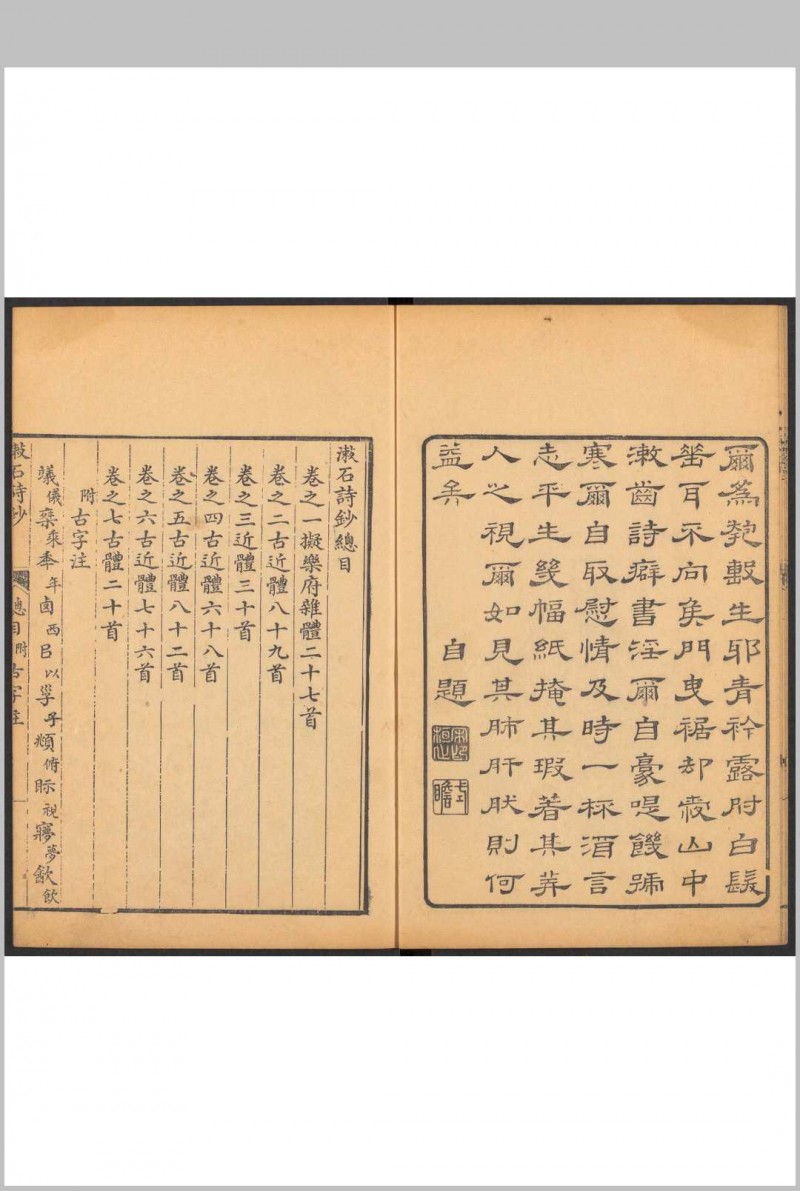 爾為㲄毄生耶青衿露肘白髩
垂耳不向矦門曳裾却爱山中
漱齒詩癖書淫爾自豪啼饑號
寒爾自取慰情及時一桮酒言
志平生幾幅紙掩其瑕著其善
人之視爾如見其肺肝肰則何
益矣
自題
漱石詩鈔總目
卷之一擬樂府雜體二十七首
卷之二古近體八十九首
卷之三近體三十首
卷之四古近體六十八首
卷之五古近體八十二首
卷之六古近體七十六首
卷之七古體二十首
附古字注
蟻儀椉乘秊年卤西㠯以孚子頫俯眎視㝱夢㱃飲
漱石詩鈔 總目附古字注